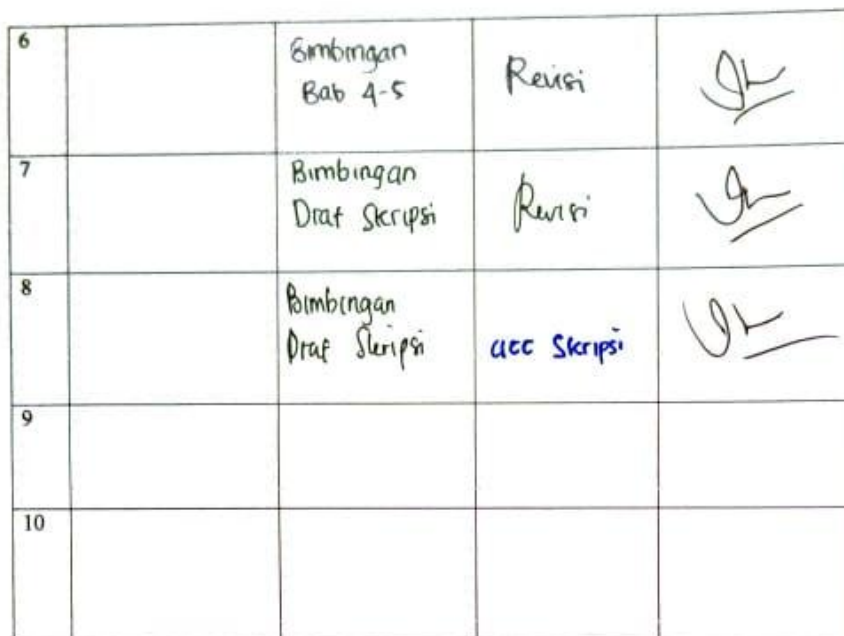 6
Bimbingan
Bab 4-5
Revisi
7
Bimbingan
Draf Skripsi
Revisi
8
Bimbingan
Draf Skripsi
acc Skripsi
9
10